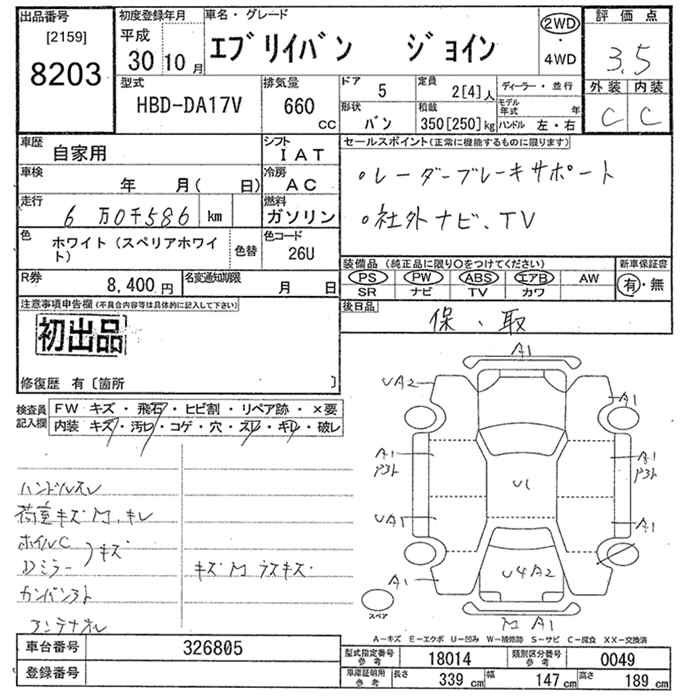 出品番号
[2159]
8203
初度登録年月
平成
30年 10月
車名・グレード
エブリイバン ジョイン
2WD
・
4WD
評価点
3.5
外装 内装
C C
型式
HBD-DA17V
排気量
660
cc
ドア
5
定員
2[4]人
ディーラー・並行
形状
バン
積載
350[250]kg
モデル年式 年
ハンドル 左・右
車歴
自家用
シフト
IAT
車検
年 月( 日)
冷房
AC
走行
6万0千586 km
燃料
ガソリン
色
ホワイト(スペリアホワイト)
色替
色コード
26U
R券
8,400円
名変通知期限
月 日
セールスポイント(正常に機能するものに限ります)
○レーダーブレーキサポート
○社外ナビ、TV
装備品 (純正品に限り○をつけてください)
PS PW ABS エアB AW
SR ナビ TV カワ
新車保証書
有・無
後日品
保・取
注意事項申告欄(不具合内容等は具体的に記入して下さい)
初出品
修復歴 有〔箇所 〕
検査員記入欄
FW キズ・飛石・ヒビ割・リペア跡・×要
内装 キズ・汚レ・コゲ・穴・スレ・キレ・破レ
ハンドルスレ
荷室キズM、キレ
ホイルC
Dミラー 〉キズ
カンバン入ト
アンテナオレ
キズM ラスキズ
A1
UA2
A1
A1
P3ト
A1
P3ト
U1
UA1
A1
A1
U4A2
M A1
スペア
A-キズ E-エクボ U-凹み W-補修跡 S-サビ C-腐食 XX-交換済
車台番号
326805
登録番号
型式指定番号
参考
18014
類別区分番号
参考
0049
車庫証明用
参考
長さ
339 cm
幅
147 cm
高さ
189 cm